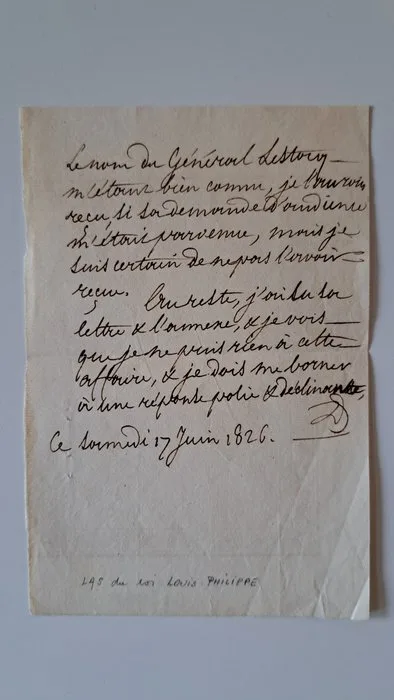 Le nom du Général Lestocq
m'étant bien connu, je l'aurois
reçu, si sa demande d'audience
m'était parvenue, mais je
suis certain de ne pas l'avoir
reçue.
Au reste, j'ai lu sa
lettre & l'annexe, & je vois
que je ne puis rien à cette
affaire, & je dois me borner
à une réponse polie & déclinante,
Ce Samedi 17 Juin 1826.
LAS du roi LOUIS-PHILIPPE